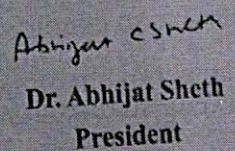 Abhijat C Sheth
Dr. Abhijat Sheth
President